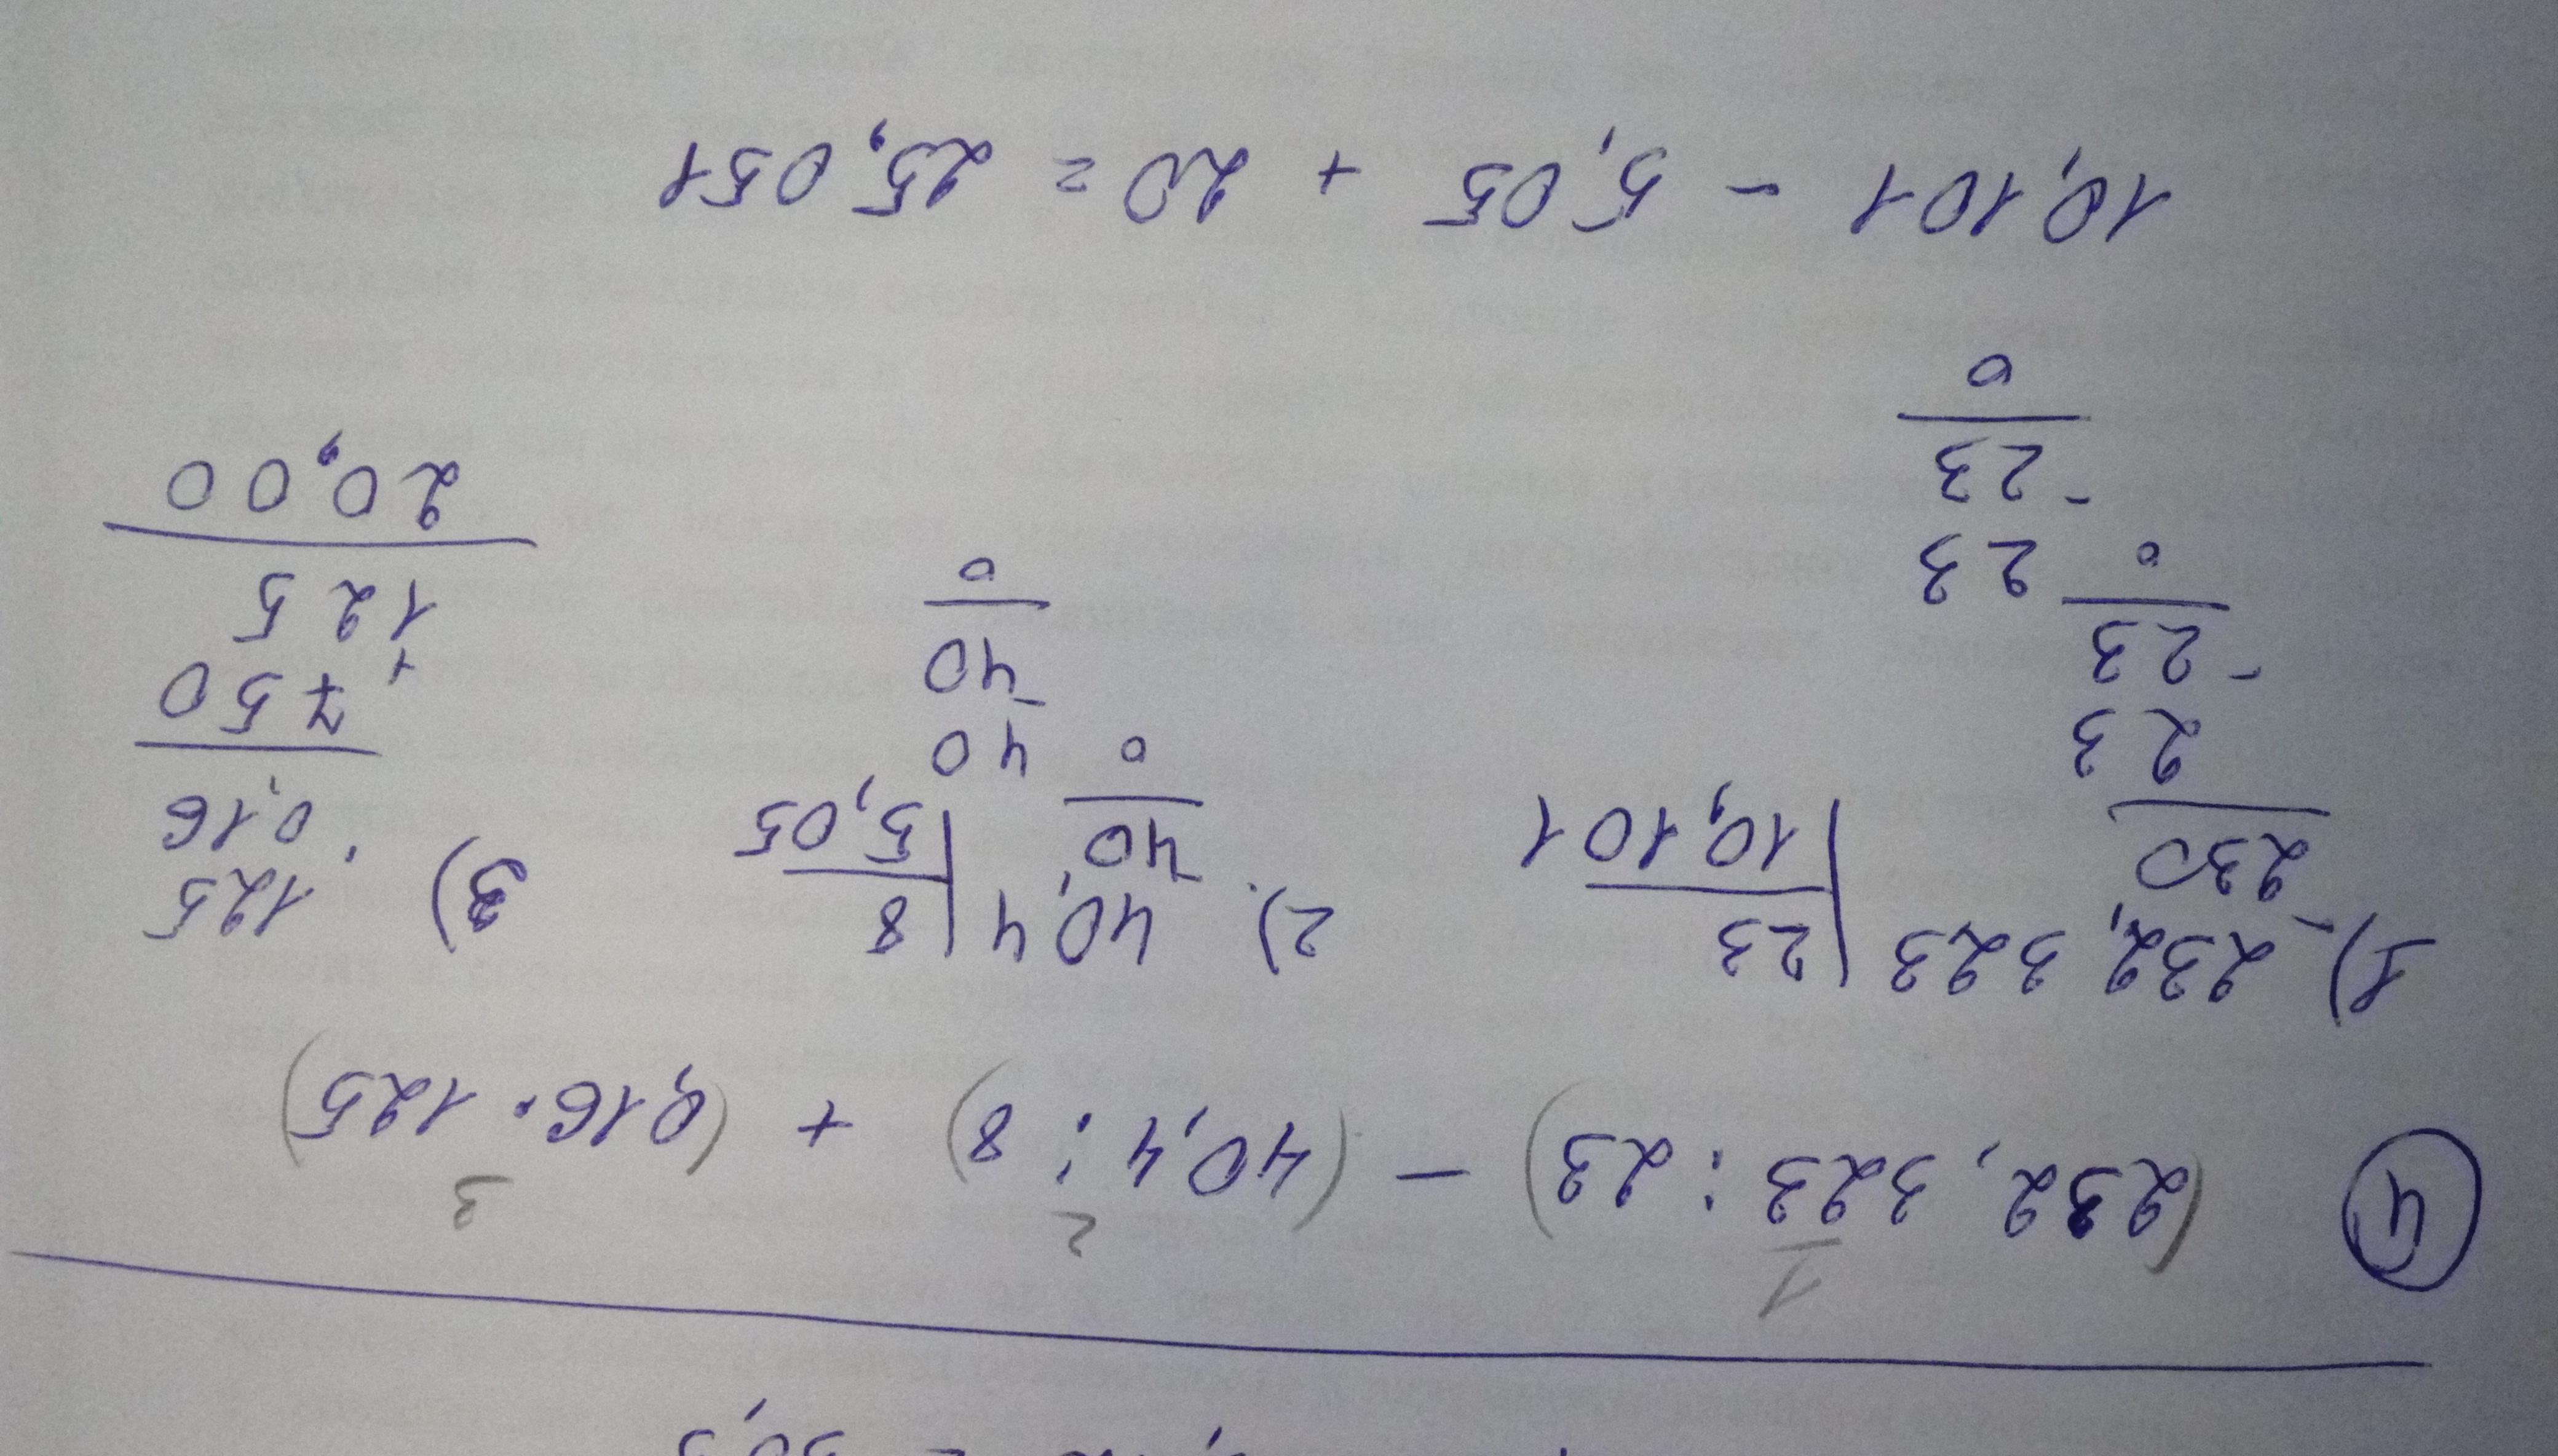 1 2 3
④ (232,323 : 23) - (40,4 : 8) + (0,16 · 125)
1) 232,323 | 23 2) 40,4 | 8 3) 125
- 230 10,101 - 40 5,05 · 0,16
23 0 40 750
- 23 - 40 + 125
0 23 0 20,00
- 23
0
10,101 - 5,05 + 20 = 25,051